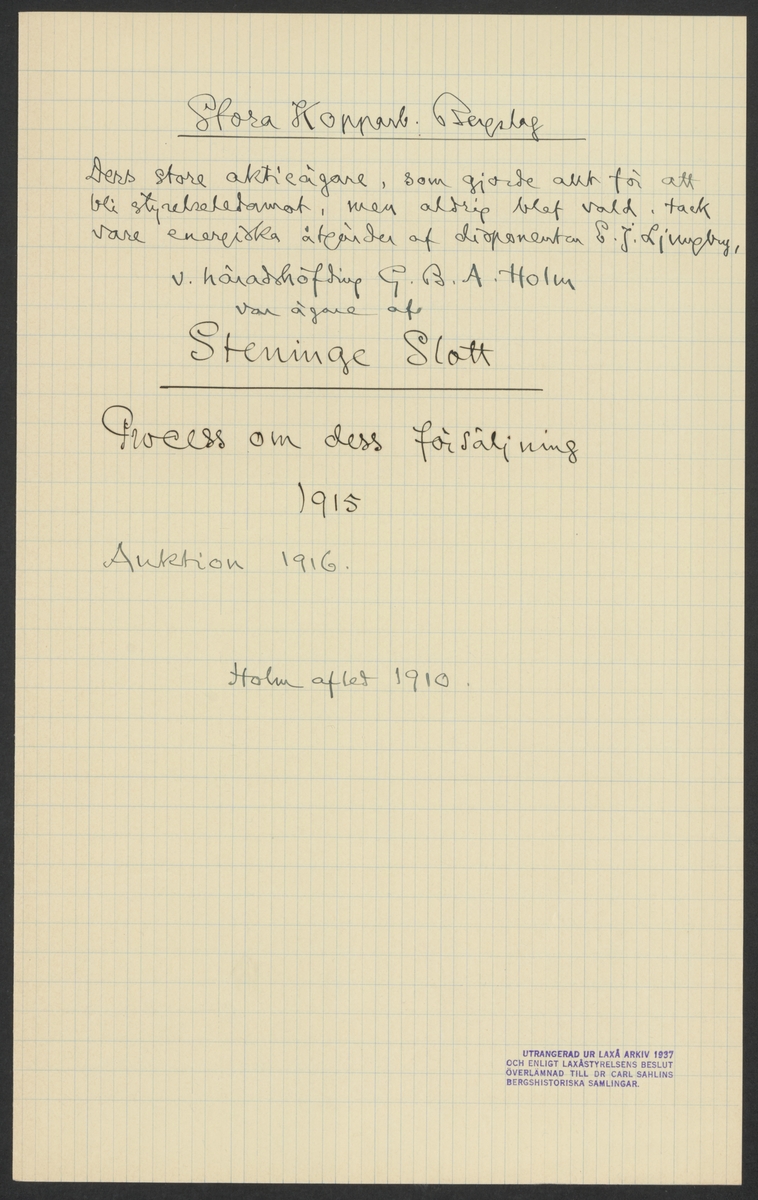 Stora Kopparb. Bergslag
Dess store aktieägare, som gjorde allt för att
bli styrelseledamot, men aldrig blef vald, tack
vare energiska åtgärder af disponenten E. J. Ljungberg,
v. häradshöfding G. B. A. Holm
var ägare af
Steninge Slott
Process om dess försäljning
1915
Auktion 1916.
Holm afled 1910.
UTRANGERAD UR LAXÅ ARKIV 1937
OCH ENLIGT LAXÅSTYRELSENS BESLUT
ÖVERLÄMNAD TILL DR CARL SAHLINS
BERGSHISTORISKA SAMLINGAR.